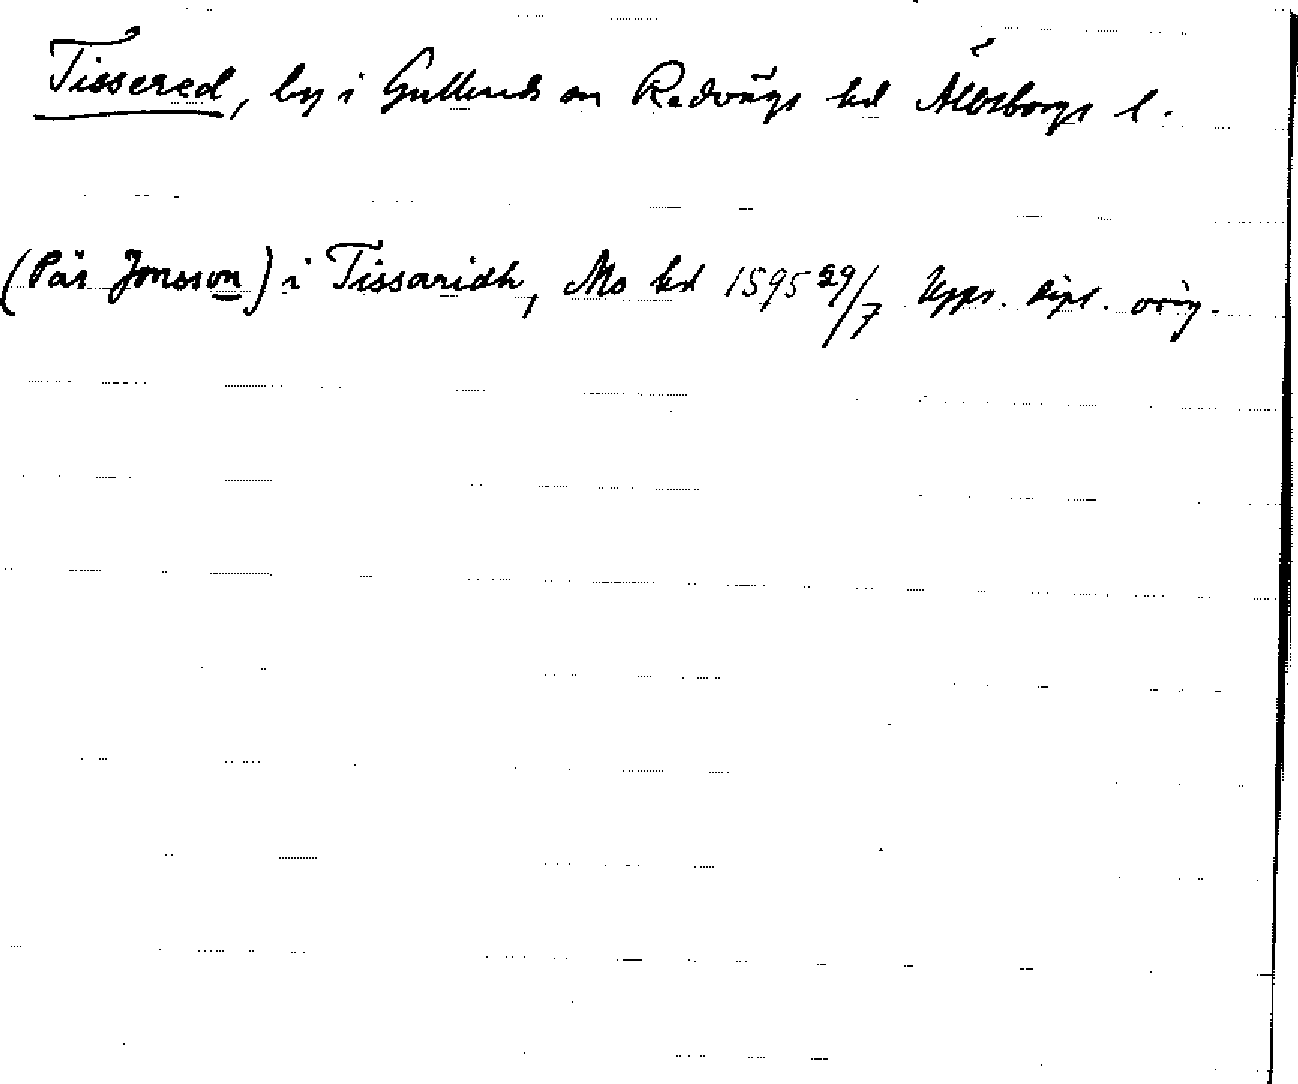 Tissered, by i Gullereds sn Redvägs hd Älvsborgs l.
(Pär Jonsson) i Tissaridh, Mo hd 1595 29/7 Upps. dipl. orig.